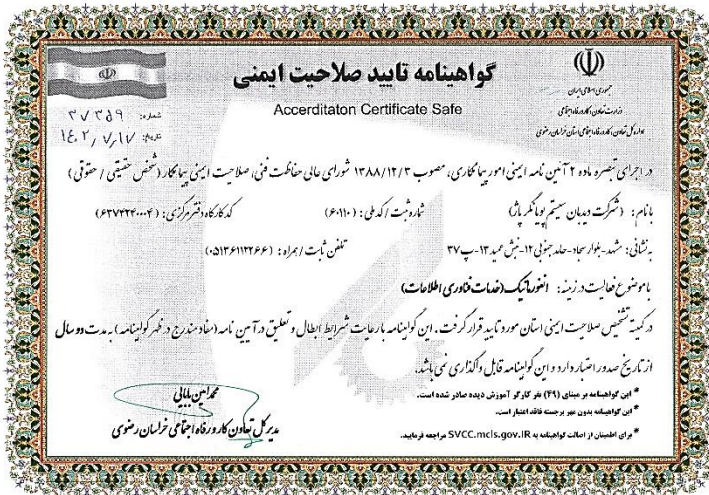 جمهوری اسلامی ایران
وزارت تعاون، کار و رفاه اجتماعی
اداره کل تعاون، کار و رفاه اجتماعی استان خراسان رضوی
گواهینامه تایید صلاحیت ایمنی
Accerditaton Certificate Safe
شماره: ۳۷۳۵۹
تاریخ: ۱۴۰۲/۷/۱۷
در اجرای تبصره ماده ۲ آئین نامه ایمنی امور پیمانکاری، مصوب ۱۳۸۸/۱۲/۳ شورای عالی حفاظت فنی، صلاحیت ایمنی پیمانکار (شخص حقیقی / حقوقی)
بانام: (شرکت دیدبان سیستم پویانگر پاژ) شماره ثبت / کد ملی: (۶۰۱۱۰) کد کارگاه دفتر مرکزی: (۶۳۷۴۲۴۰۰۰۴)
به نشانی: مشهد-بلوار سجاد-حامد جنوبی ۱۲-نبش عمید ۱۳-پ ۳۷ تلفن ثابت / همراه: (۰۵۱۳۶۱۱۲۲۶۶)
باموضوع فعالیت در زمینه: انفورماتیک(خدمات فناوری اطلاعات)
در کمیته تشخیص صلاحیت ایمنی استان مورد تایید قرار گرفت. این گواهینامه با رعایت شرایط ابطال و تعلیق در آیین نامه (مفاد مندرج در ظهر گواهینامه) به مدت دو سال
از تاریخ صدور اعتبار دارد و این گواهینامه قابل واگذاری نمی باشد.
* این گواهینامه بر مبنای (۴۹) نفر کارگر آموزش دیده صادر شده است.
* این گواهینامه بدون مهر برجسته فاقد اعتبار است.
* برای اطمینان از اصالت گواهینامه به SVCC.mcls.gov.IR مراجعه فرمایید.
محمد امین بابایی
مدیر کل تعاون کار و رفاه اجتماعی خراسان رضوی